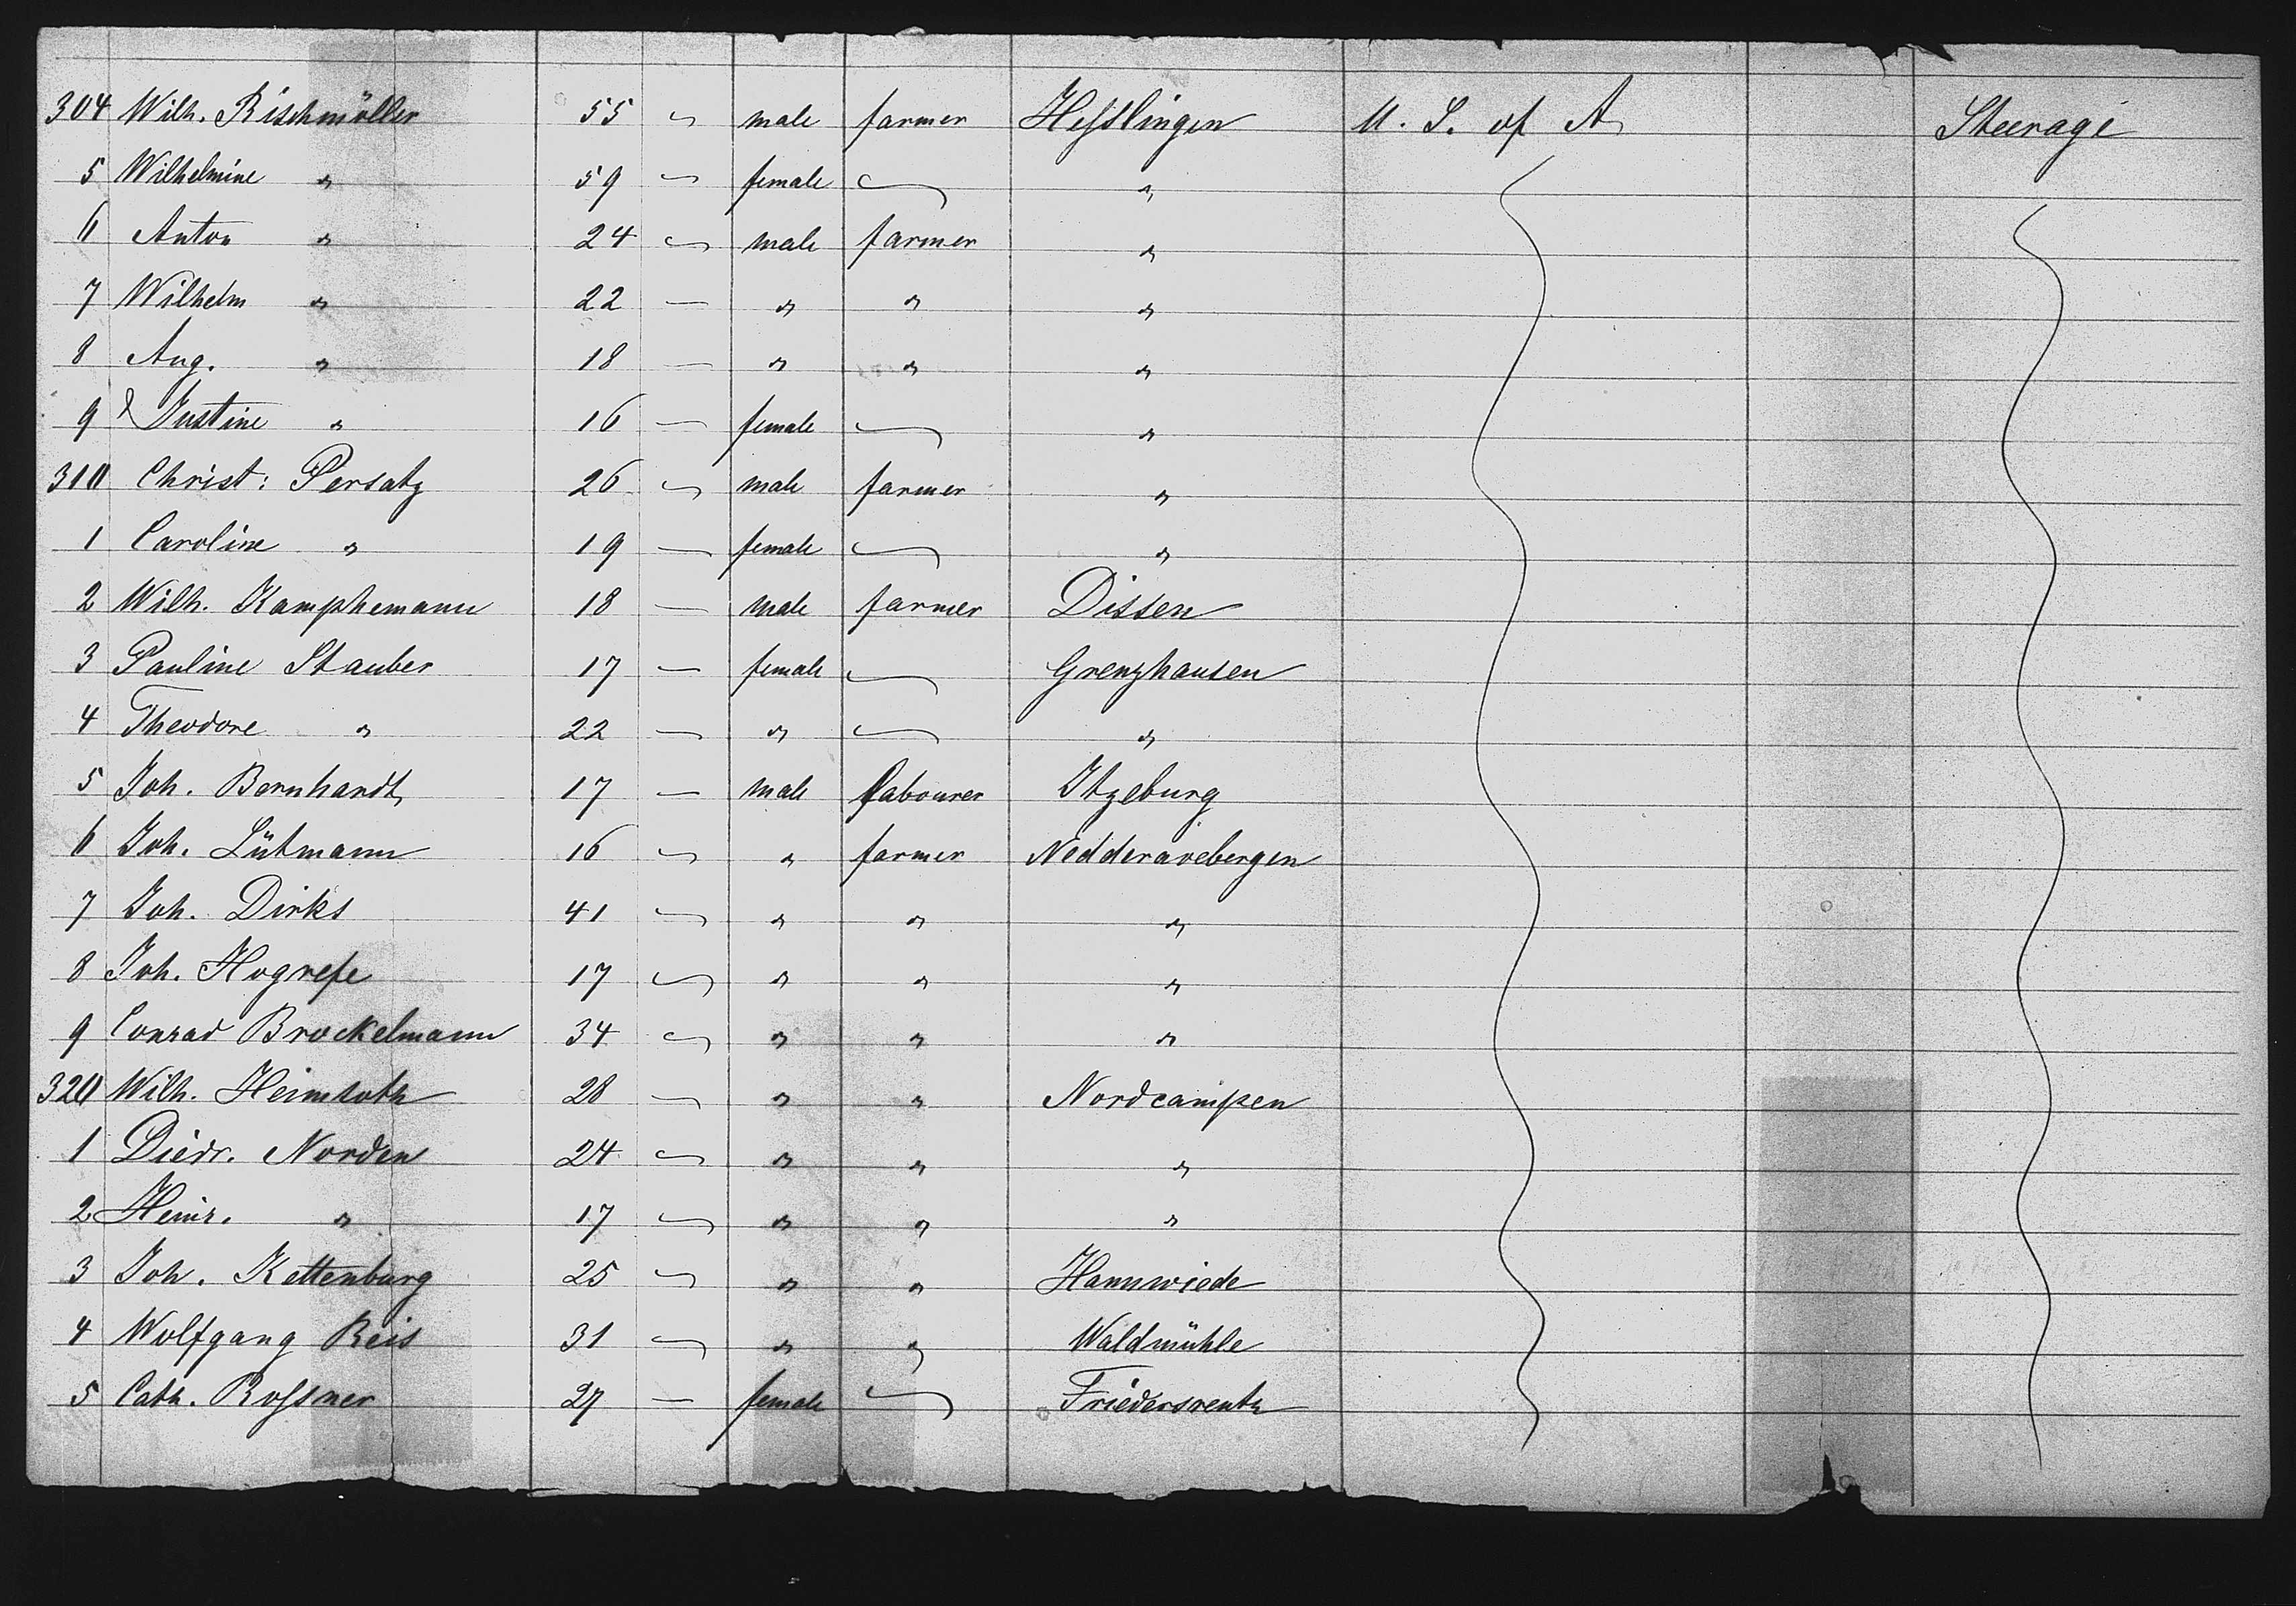 304 Wilh. Rischmöller 55 " male farmer Hesslingen U. S. of A Steerage
5 Wilhelmine " 59 " female — "
6 Anton " 24 " male farmer "
7 Wilhelm " 22 — " " "
8 Aug. " 18 — " " "
9 Justine " 16 — female — "
310 Christ: Persatz 26 " male farmer "
1 Caroline " 19 — female — "
2 Wilh. Kamphemann 18 — male farmer Dissen
3 Pauline Stauber 17 — female — Grenzhausen
4 Theodore " 22 — " — "
5 Joh. Bernhardt 17 — male labourer Itzeburg
6 Joh. Lütmann 16 " " farmer Nedderavebergen
7 Joh. Dirks 41 " " " "
8 Joh. Hogrefe 17 " " " "
9 Conrad Brockelmann 34 " " " "
320 Wilh. Heimsoth 28 " " " Nordcampen
1 Diedr. Norden 24 " " " "
2 Heinr. " 17 " " " "
3 Joh. Kettenburg 25 " " " Hamwiede
4 Wolfgang Reis 31 " " " Waldmühle
5 Cath. Rossner 27 — female — Friedersreuth